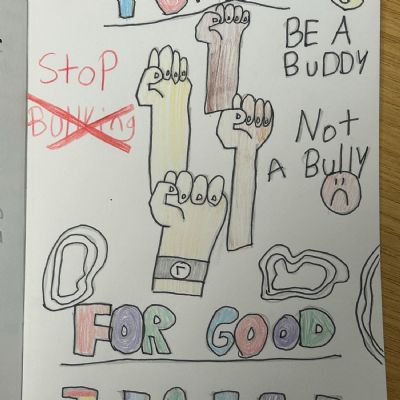 BE A
BuDDY
StoP
BullYing
Not
A Bully
FOR GOOD